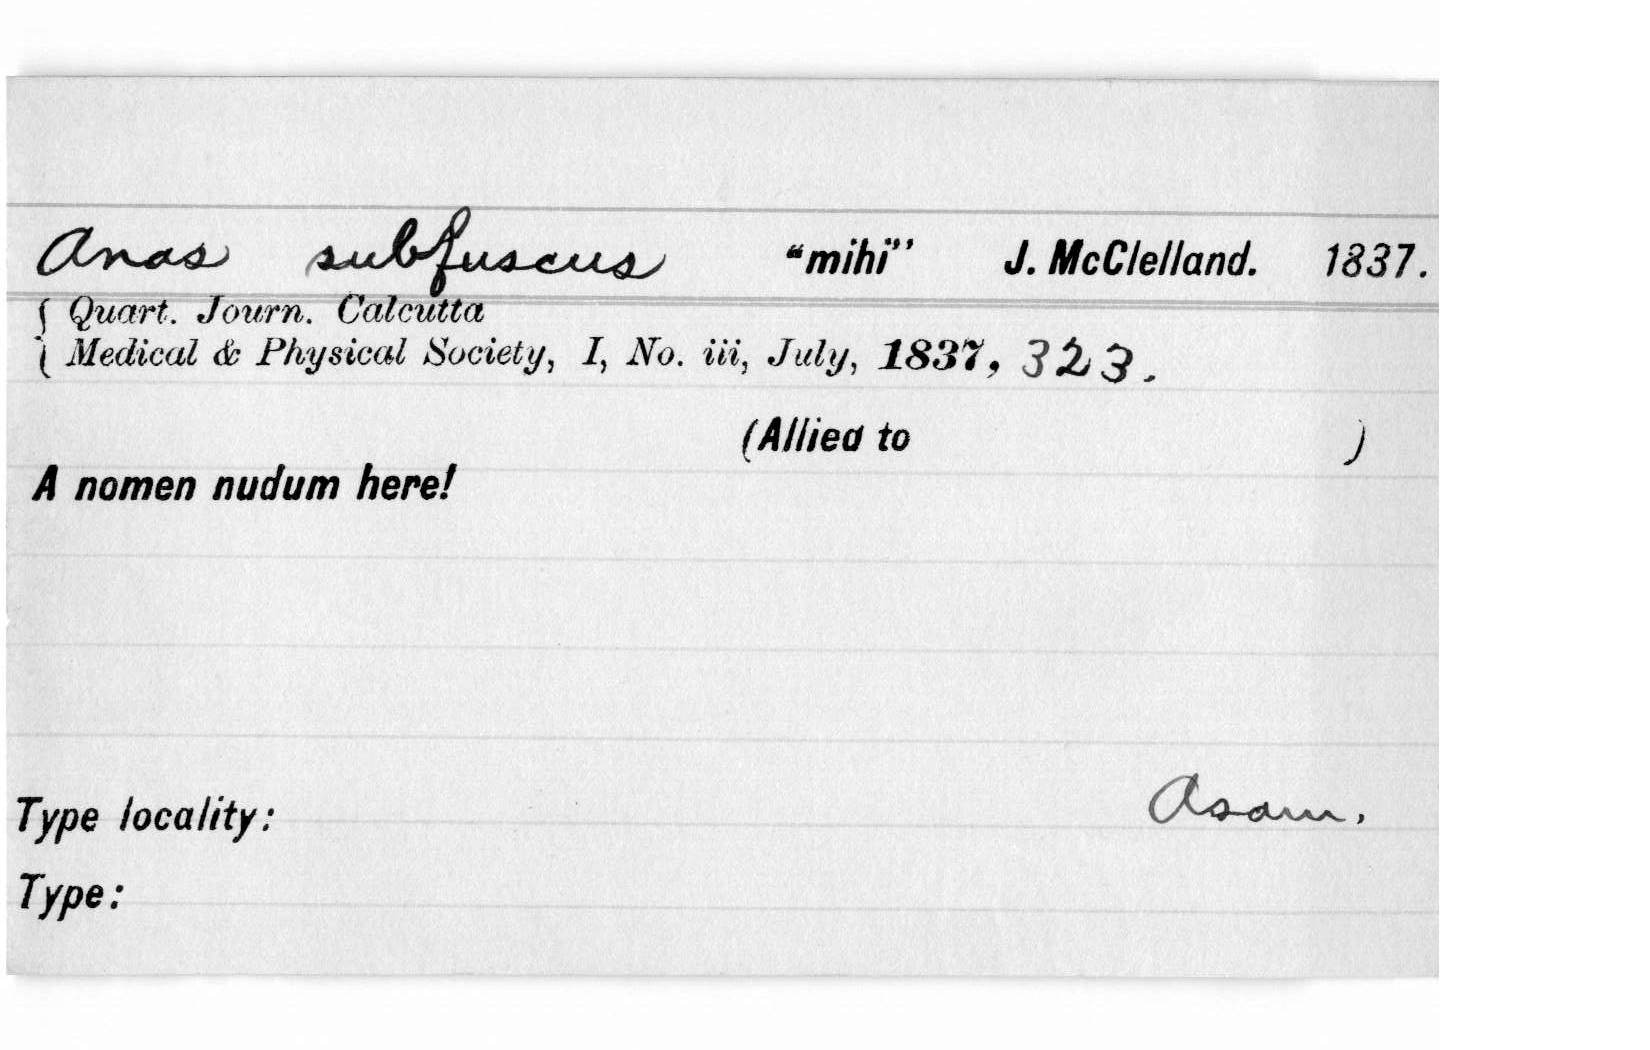 Anas subfuscus "mihi" J. McClelland. 1837.
{ Quart. Journ. Calcutta
{ Medical & Physical Society, I, No. iii, July, 1837, 323.
(Allied to )
A nomen nudum here!
Asam.
Type locality:
Type: